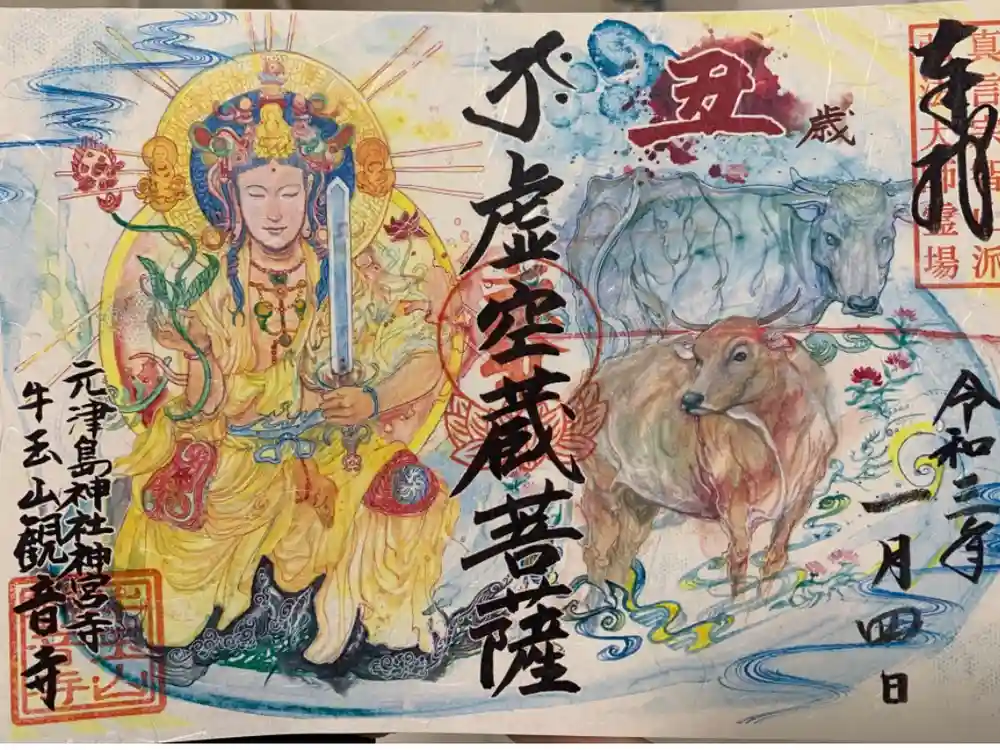 奉拝
真言
派
大師霊場
令和三年
一月四日
丑歳
虚空蔵菩薩
元津島神社神宮寺
牛玉山観音寺